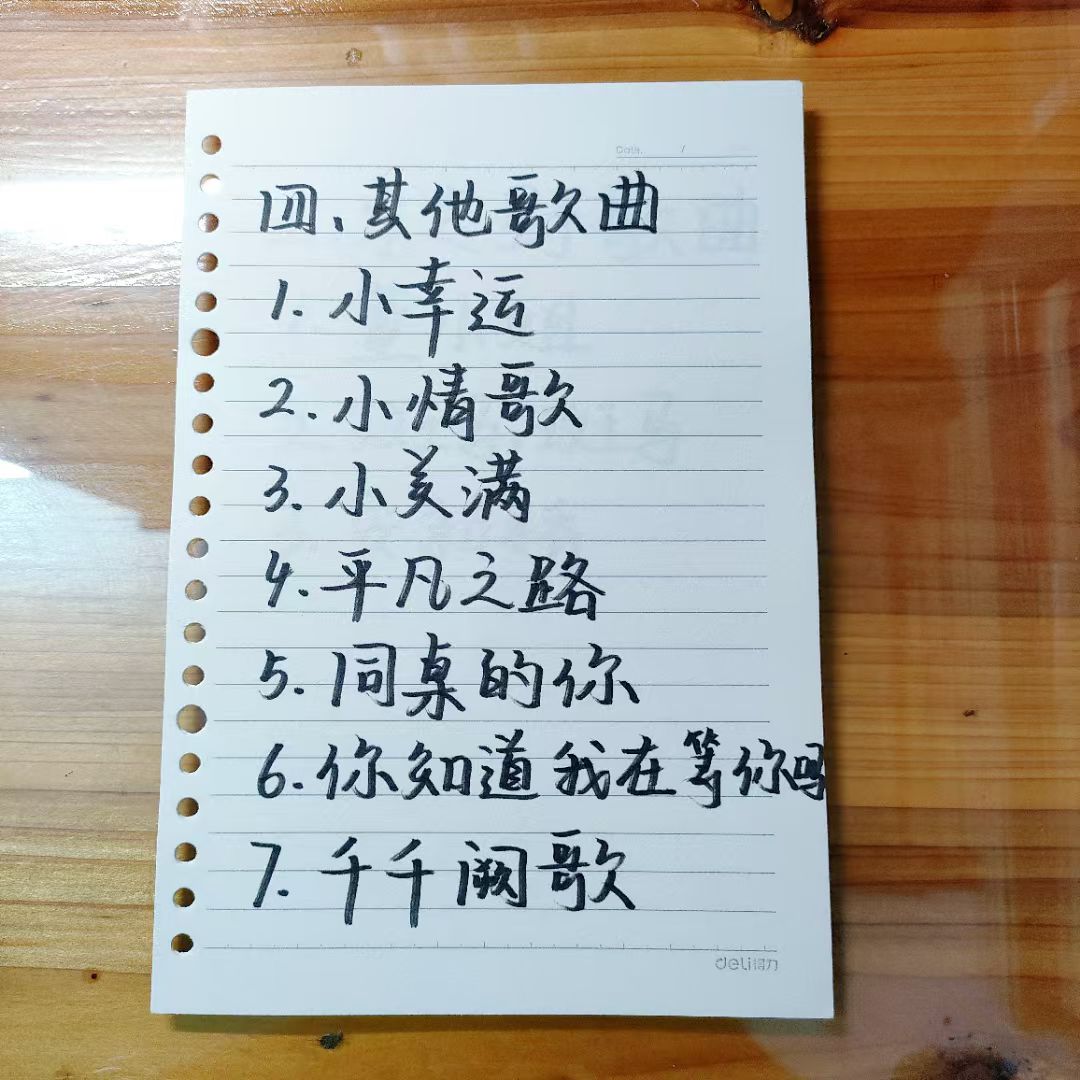 Date. /
四、其他歌曲
1. 小幸运
2. 小情歌
3. 小美满
4. 平凡之路
5. 同桌的你
6. 你知道我在等你吗
7. 千千阙歌
deli得力